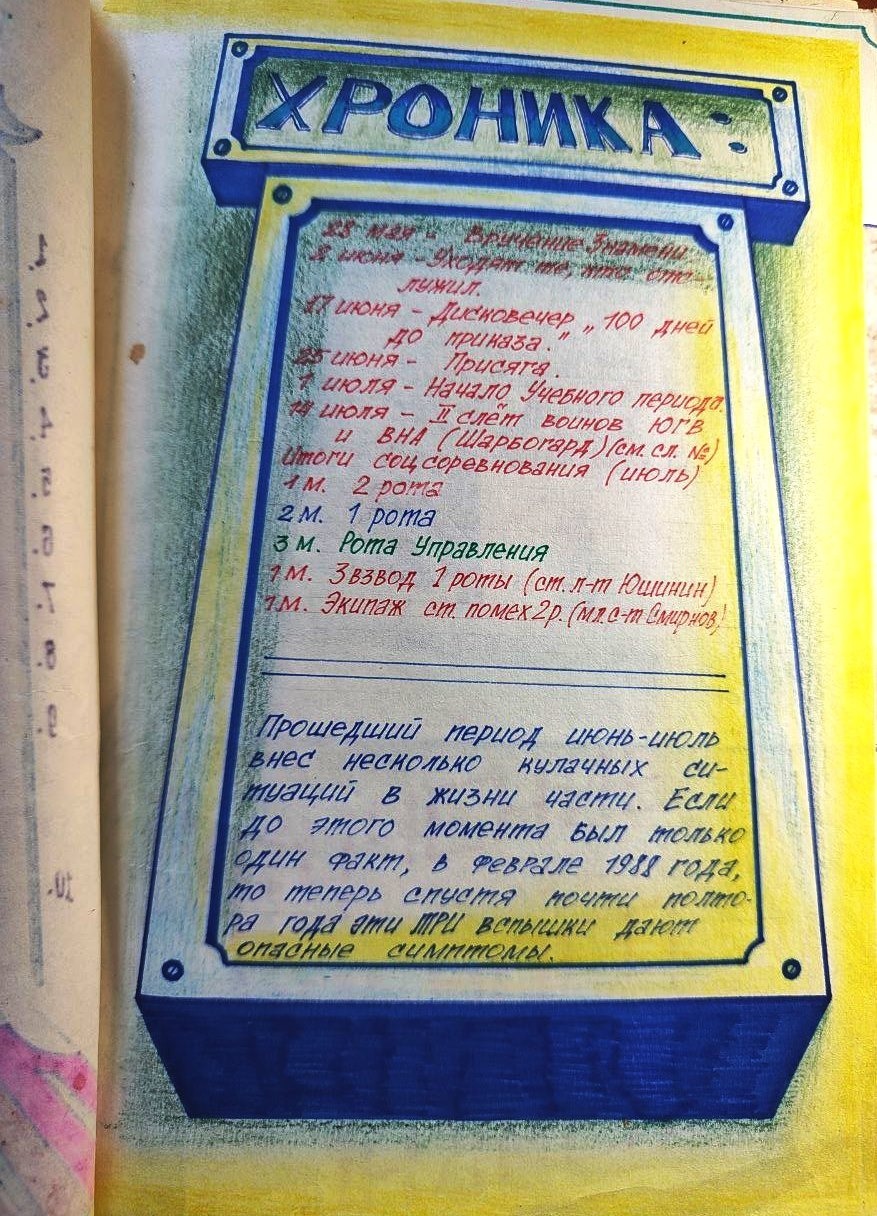 ХРОНИКА:
28 мая - Вручение Знамени
2 июня - Уходят те, кто отс-
лужил.
17 июня - Дисковечер „100 дней
до приказа."
25 июня - Присяга.
1 июля - Начало Учебного периода.
14 июля - II слёт воинов ЮГВ
и ВНА (Шарбогард) (см. сл. №)
Итоги соцсоревнования (июль)
1 м. 2 рота
2 м. 1 рота
3 м. Рота Управления
1 м. 3 взвод 1 роты (ст. л-т Юшинин)
1 м. Экипаж ст. помех 2 р. (мл. с-т Смирнов)
Прошедший период июнь-июль
внес несколько кулачных си-
туаций в жизни части. Если
до этого момента был только
один факт, в феврале 1988 года,
то теперь спустя почти полто-
ра года эти ТРИ вспышки дают
опасные симптомы.